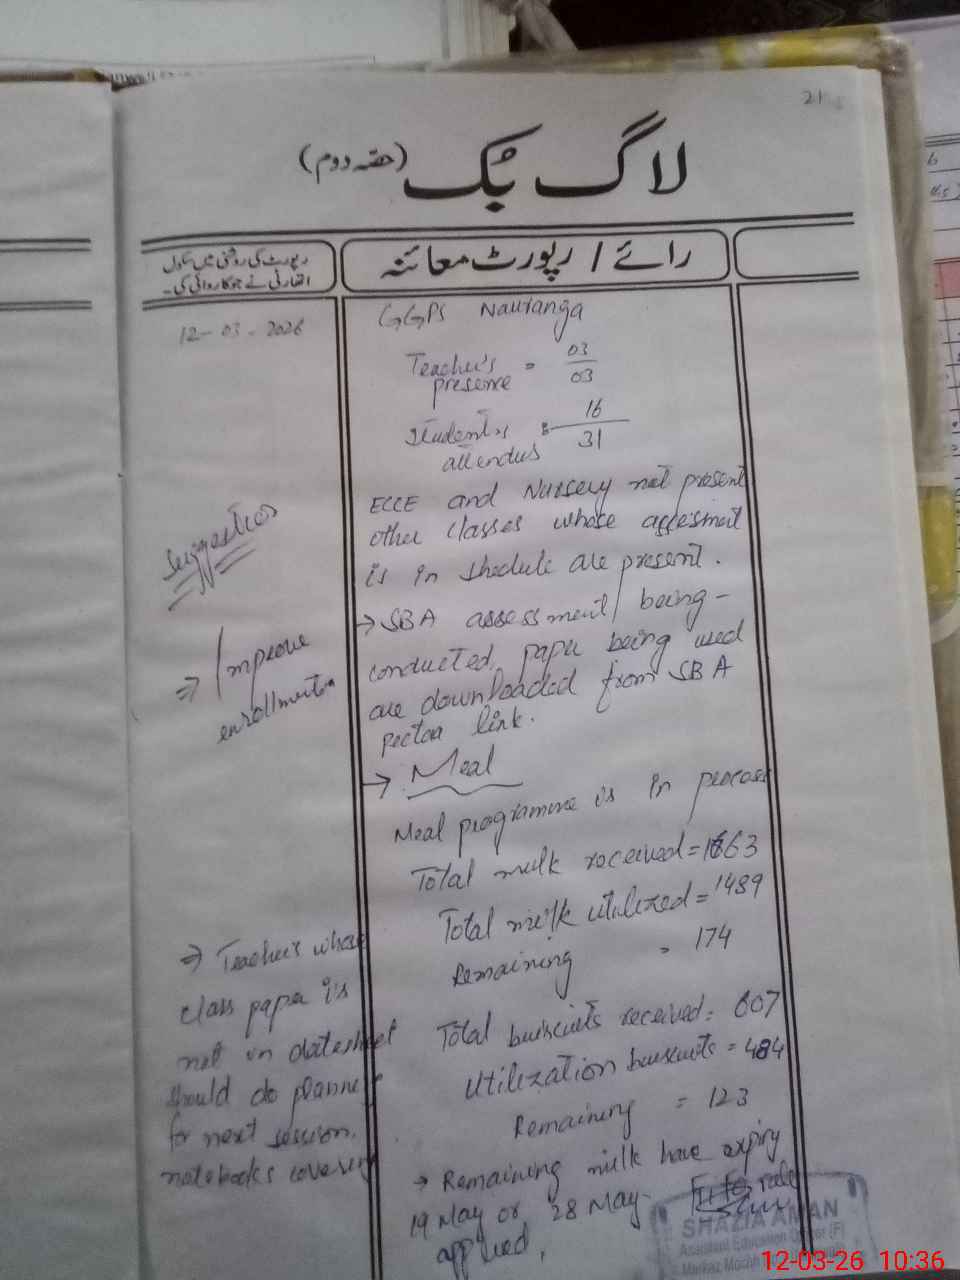 لاگ بک (حصہ دوم)
رائے / رپورٹ معائنہ
رپورٹ کی روشنی میں سکول
اتھارٹی نے جو کاروائی کی۔
12-03-2026
GGPS Nautanga
Teacher's presence = 03/03
Students attendus : 16/31
ECCE and Nursery not present
other classes whose assesment
is in shedule are present.
→ SBA assessment being-
conducted, paper being used
are downloaded from SBA
pectaa link.
→ Meal
Meal programme is in process
Total mulk received = 1663
Total milk utilized = 1489
Remaining = 174
Total buiscuits received = 607
Utilization buiscuits = 484
Remaining = 123
→ Remaining milk have expiry
19 May or 28 May. FIFO rule
applied.
Suggestion
⇒ Improve
enrollment
⇒ Teacher's whose
class paper is
not in datesheet
should do planning
for next session.
notebooks covering
SHAZIA AMAN
Assistant Education Officer (F)
Markaz
12-03-26 10:36